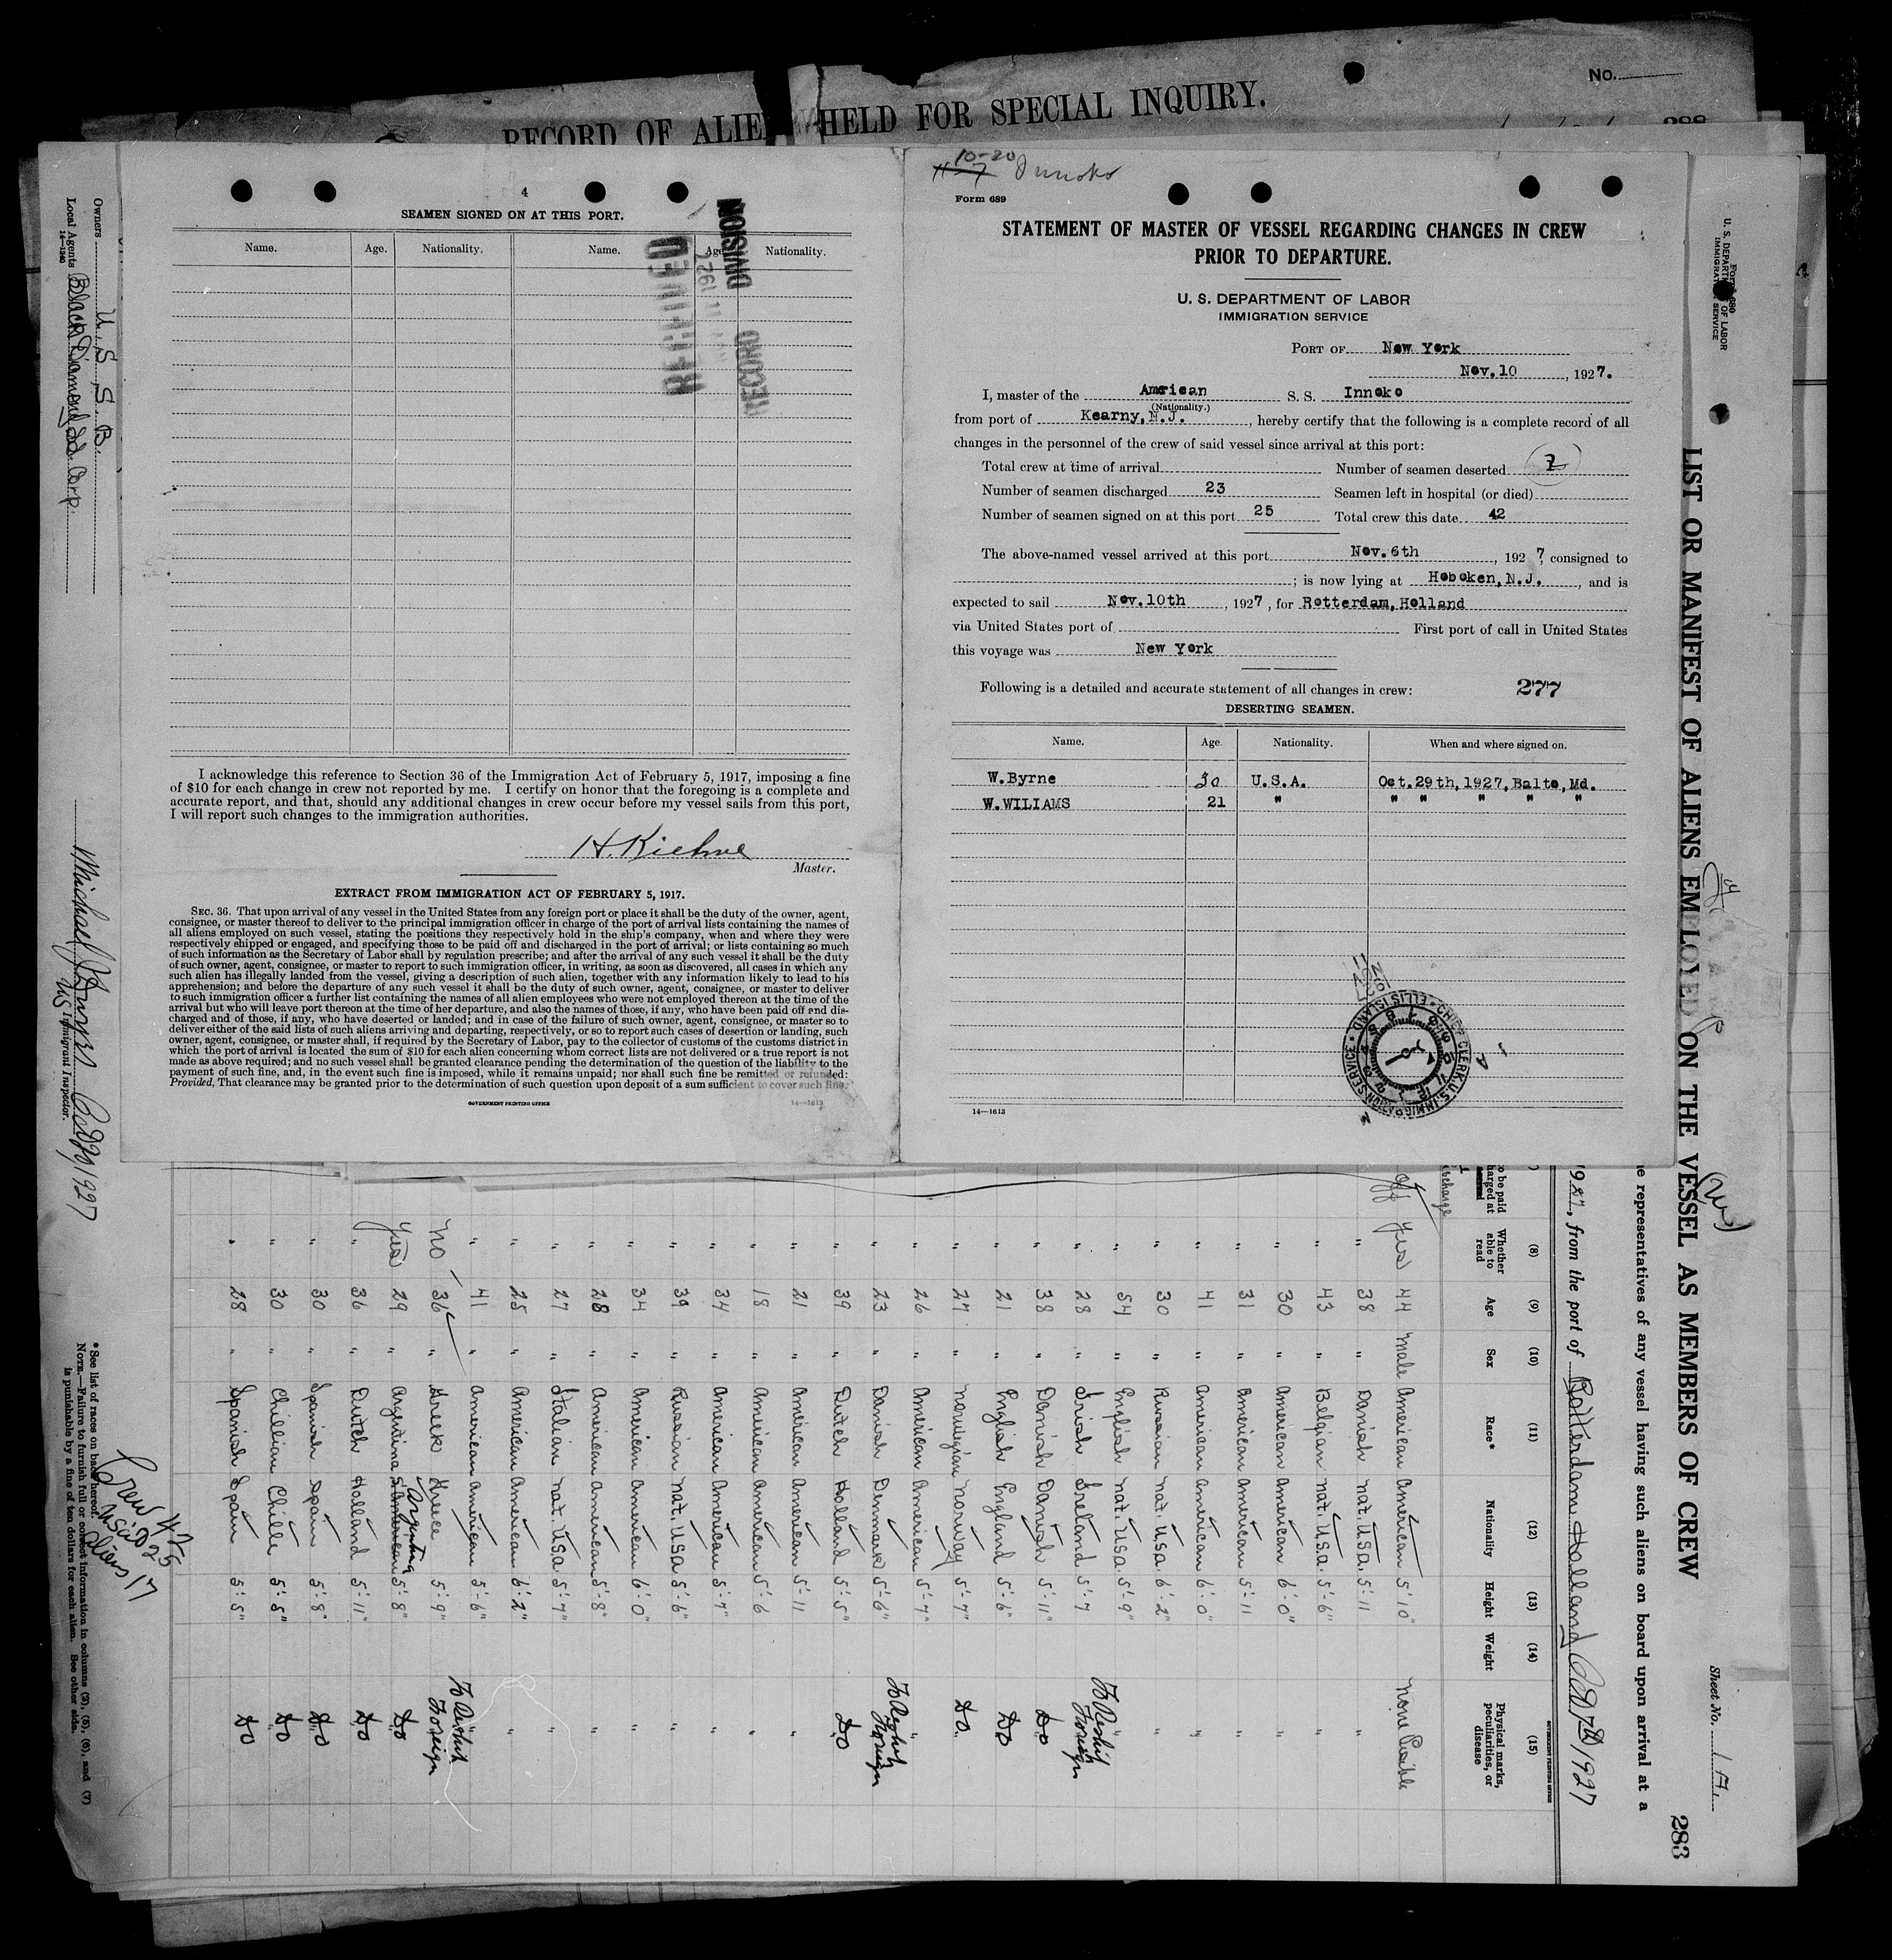 No.
RECORD OF ALIE HELD FOR SPECIAL INQUIRY.
4
SEAMEN SIGNED ON AT THIS PORT.
Name. Age. Nationality. Name. Age. Nationality.
RECORD DIVISION
I acknowledge this reference to Section 36 of the Immigration Act of February 5, 1917, imposing a fine
of $10 for each change in crew not reported by me. I certify on honor that the foregoing is a complete and
accurate report, and that, should any additional changes in crew occur before my vessel sails from this port,
I will report such changes to the immigration authorities.
H. Kiehne
Master.
EXTRACT FROM IMMIGRATION ACT OF FEBRUARY 5, 1917.
SEC. 36. That upon arrival of any vessel in the United States from any foreign port or place it shall be the duty of the owner, agent,
consignee, or master thereof to deliver to the principal immigration officer in charge of the port of arrival lists containing the names of
all aliens employed on such vessel, stating the positions they respectively hold in the ship's company, when and where they were
respectively shipped or engaged, and specifying those to be paid off and discharged in the port of arrival; or lists containing so much
of such information as the Secretary of Labor shall by regulation prescribe; and after the arrival of any such vessel it shall be the duty
of such owner, agent, consignee, or master to report to such immigration officer, in writing, as soon as discovered, all cases in which any
such alien has illegally landed from the vessel, giving a description of such alien, together with any information likely to lead to his
apprehension; and before the departure of any such vessel it shall be the duty of such owner, agent, consignee, or master to deliver
to such immigration officer a further list containing the names of all alien employees who were not employed thereon at the time of the
arrival but who will leave port thereon at the time of her departure, and also the names of those, if any, who have been paid off and dis-
charged and of those, if any, who have deserted or landed; and in case of the failure of such owner, agent, consignee, or master so to
deliver either of the said lists of such aliens arriving and departing, respectively, or so to report such cases of desertion or landing, such
owner, agent, consignee, or master shall, if required by the Secretary of Labor, pay to the collector of customs of the customs district in
which the port of arrival is located the sum of $10 for each alien concerning whom correct lists are not delivered or a true report is not
made as above required; and no such vessel shall be granted clearance pending the determination of the question of the liability to the
payment of such fine, and, in the event such fine is imposed, while it remains unpaid; nor shall such fine be remitted or refunded:
Provided, That clearance may be granted prior to the determination of such question upon deposit of a sum sufficient to cover such fine.
GOVERNMENT PRINTING OFFICE
14—1613
10-20
Innoko
Form 689
STATEMENT OF MASTER OF VESSEL REGARDING CHANGES IN CREW
PRIOR TO DEPARTURE.
U. S. DEPARTMENT OF LABOR
IMMIGRATION SERVICE
PORT OF New York
Nov.10, 1927.
I, master of the American S. S. Innoko
(Nationality.)
from port of Kearny, N.J., hereby certify that the following is a complete record of all
changes in the personnel of the crew of said vessel since arrival at this port:
Total crew at time of arrival Number of seamen deserted 2
Number of seamen discharged 23 Seamen left in hospital (or died)
Number of seamen signed on at this port 25 Total crew this date 42
The above-named vessel arrived at this port Nov.6th, 1927, consigned to
; is now lying at Hoboken, N.J., and is
expected to sail Nov.10th, 1927, for Rotterdam, Holland
via United States port of First port of call in United States
this voyage was New York
Following is a detailed and accurate statement of all changes in crew: 277
DESERTING SEAMEN.
Name. Age. Nationality. When and where signed on.
W.Byrne 30 U.S.A. Oct.29th,1927,Balto,Md.
W.WILIAMS 21 " " " " " "
CHIEF CLERK, U.S. IMMIGRATION SERVICE • ELLIS ISLAND
14—1613
Form 680
U. S. DEPARTMENT OF LABOR
IMMIGRATION SERVICE
Sheet No. 1 A
283
LIST OR MANIFEST OF ALIENS EMPLOYED ON THE VESSEL AS MEMBERS OF CREW
e representatives of any vessel having such aliens on board upon arrival at a
1927, from the port of Rotterdam, Holland Oct 7th 1927
(8) (9) (10) (11) (12) (13) (14) (15)
Whether able to read Age Sex Race* Nationality Height Weight Physical marks, peculiarities, or disease
yes 44 Male American American 5'-10" None Visible
" 38 " Danish Nat. U.S.A. 5'-11 "
" 43 " Belgian Nat. U.S.A. 5'-6" "
" 30 " American American 6'-0" "
" 31 " American American 5'-11 "
" 41 " American American 6'-0" "
" 30 " Russian Nat. U.S.A. 6'-2" "
" 54 " English Nat. U.S.A. 5'-9" "
" 28 " Irish Ireland 5'-7 To Reship Foreign
" 38 " Danish Danish 5'-11" Do
" 21 " English England 5'-6" Do
" 27 " Norwegian Norway 5'-7" Do
" 26 " American American 5'-7" "
" 23 " Danish Denmark 5'-6" To Reship Foreign
" 39 " Dutch Holland 5'-5" Do
" 21 " American American 5'-11 "
" 18 " American American 5'-6 "
" 34 " American American 5'-7" "
" 39 " Russian Nat. U.S.A. 5'-6" "
" 34 " American American 6'-0" "
" 28 " American American 5'-8" "
" 27 " Italian Nat. U.S.A. 5'-7" "
" 25 " American American 6'-2" "
" 41 " American American 5'-6" "
No 36 " Greek Greece 5'-9" To Reship Foreign
Yes 29 " Argentina Argentina 5'-8" Do
" 36 " Dutch Holland 5'-11" Do
" 30 " Spanish Spain 5'-8" Do
" 30 " Chillian Chille 5'-5" Do
" 28 " Spanish Spain 5'-5" Do
Crew 42
USC 25
Aliens 17
*See list of races on back hereof.
NOTE.—Failure to furnish full or correct information in columns (2), (5), (6), and (7)
is punishable by a fine of ten dollars for each alien. See other side.
Owners U. S. S. B.
Local Agents Black Diamond SS. Corp.
14—1240
Immigrant Inspector.